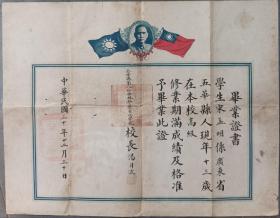 畢業證書
學生宋孟明係廣東省
五華縣人現年十三歲
在本校高級
修業期滿成績及格准
予畢業此證
校長
中華民國三十年十二月三十日